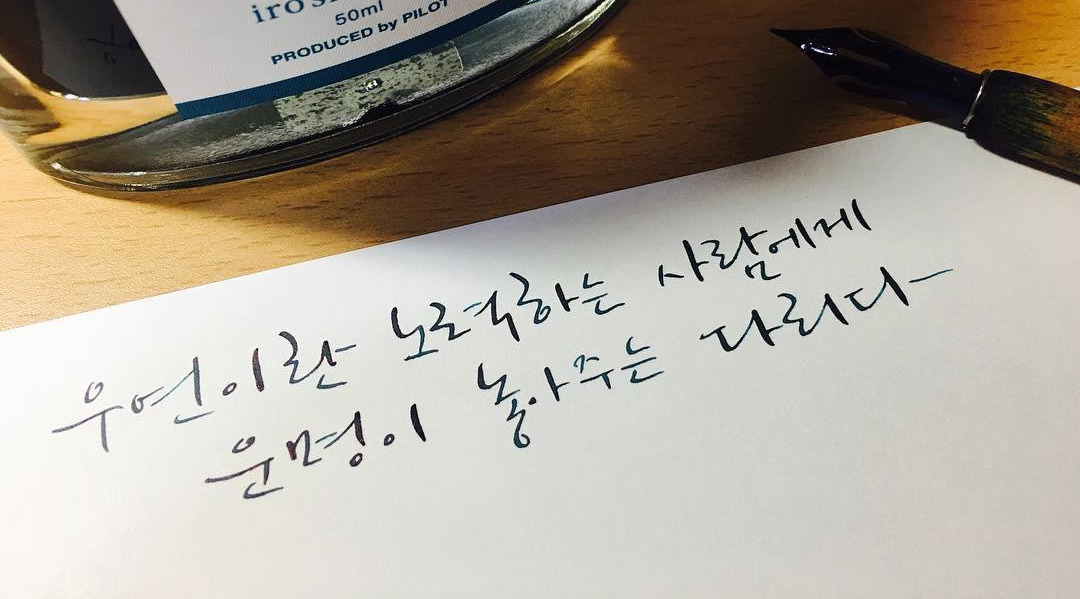 50ml
PRODUCED by PILOT
우연이란 노력하는 사람에게
운명이 놓아주는 다리다~